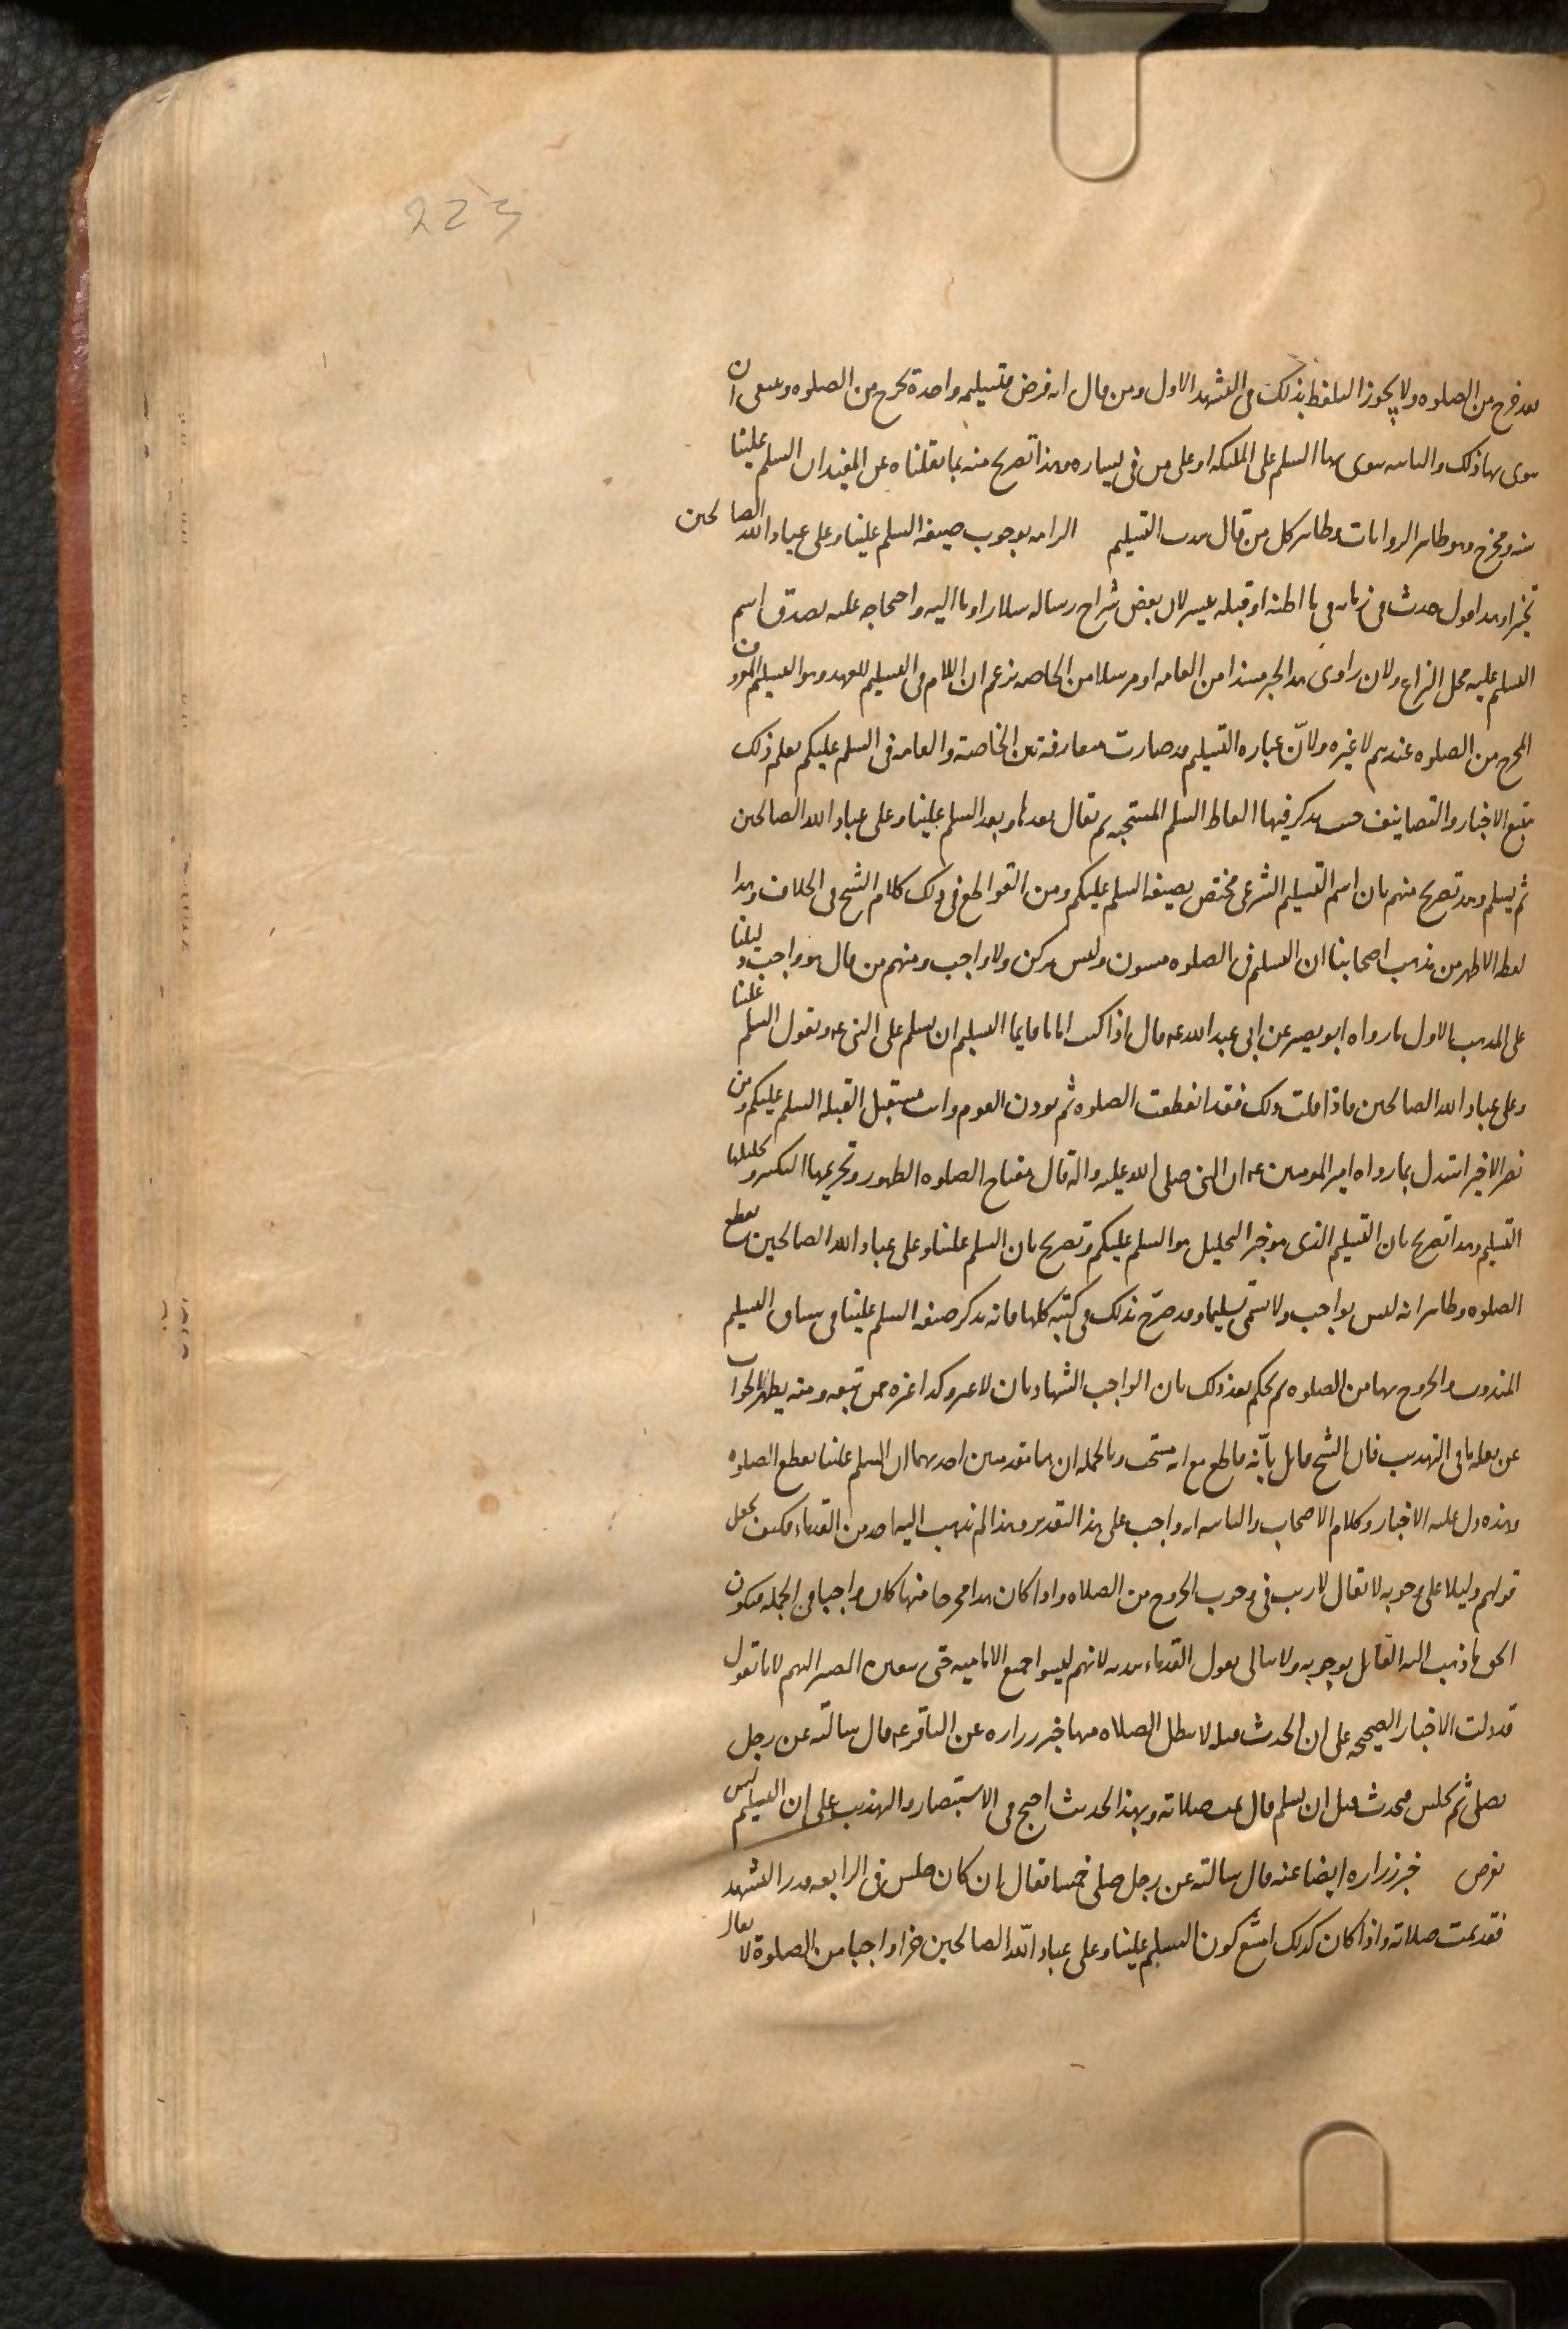 223
فقد خرج من الصلوه ولا يجوز التلفظ بذلك في التشهد الاول ومن قال انه فرض فتسليمه واحدة يخرج من الصلوه وينبغي ان
ينوى بها ذلك والثانيه ينوى بها السلم على الملئكه او على من في يساره وهذا تصريح منه بما نقلناه عن المفيد ان السلم علينا
سنه ومخرج وهو ظاهر الروايات وظاهر كل من قال بندب التسليم الرابعه بوجوب صيغه السلم علينا وعلى عباد الله الصالحين
تخيرا وهذا قول حدث في زمانه في ما اظنه او قبله بيسير لان بعض شراح رساله سلار اوما اليه واحتجاجه عليه بصدق اسم
التسليم عليه محل النزاع ولان راوى هذا الخبر مسندا من العامه او مرسلا من الخاصه يزعم ان اللام في التسليم للعهد وهو التسليم المعروف
المخرج من الصلوه عندهم لا غيره ولانّ عباره التسليم قد صارت متعارفة بين الخاصة والعامه في السلم عليكم يعلم ذلك
بتتبع الاخبار والتصانيف حيث يذكر فيها الفاظ السلم المستحبه ثم يقال بعدها وبعد السلم علينا وعلى عباد الله الصالحين
ثم يسلم وهذ تصريح منهم بان اسم التسليم الشرعى مختص بصيغه السلم عليكم ومن القواطع في ذلك كلام الشيخ في الخلاف وهذا
لفظه الاظهر من مذهب اصحابنا ان التسليم في الصلوه مسنون وليس بركن ولا واجب ومنهم من قال هو واجب دليلنا
على المذهب الاول ما رواه ابو بصير عن ابى عبد الله عه قال اذا كنت اماما فانما التسليم ان تسلم على النبى عه وتقول السلم علينا
وعلى عباد الله الصالحين فاذا قلت ذلك فقد انقطعت الصلوه ثم تؤذن القوم وانت مستقبل القبله السلم عليكم ومن
نصر الاخير استدل بما رواه امير المومنين عه ان النبى صلى الله عليه واله قال مفتاح الصلوه الطهور وتحريمها التكبير وتحليلها
التسليم وهذا تصريح بان التسليم الذى هو خبر التحليل هو السلم عليكم وتصريح بان السلم علينا وعلى عباد الله الصالحين يقطع
الصلوه وظاهر انه ليس بواجب ولا يسمى تسليما وقد صرّح بذلك في كتبه كلها فانه يذكر صيغه السلم علينا في سياق التسليم
المندوب والخروج بها من الصلوه ثم يحكم بعد ذلك بان الواجب الشهادتان لا غير وكذا غيره ممن تبعه ومنه يظهر الجواب
عن نقله ما في التهذيب فان الشيخ قائل بأنه قاطع مع انه مستحب وبالجمله ان هنا مقدمتين احديهما ان السلم علينا يقطع الصلوه
وهذه دل عليه الاخبار وكلام الاصحاب والثانيه انه واجب على هذا التقدير وهذا لم يذهب اليه احد من القدماء فكيف يجعل
قولهم دليلا على وجوبه لا يقال لا ريب في وجوب الخروج من الصلاه واذا كان هذا مخرجا منها كان واجبا في الجمله فيكون
الحق ما ذهب اليه القايل بوجوبه ولا نبالى بقول القدماء بندبه لانهم ليسوا جميع الاماميه حتى يتعين المصير اليهم لانا نقول
قد دلت الاخبار الصحيحه على ان الحدث قبله لا يبطل الصلاه منها خبر زراره عن الباقر عه قال سالته عن رجل
يصلى ثم يجلس فيحدث قبل ان يسلم قال تمت صلاته وبهذا الحديث احتج في الاستبصار والتهذيب على ان التسليم ليس
بفرض خبر زراره ايضا عنه قال سالته عن رجل صلى خمسا فقال ان كان جلس في الرابعه قدر التشهد
فقد تمت صلاته واذا كان كذلك امتنع كون التسليم علينا وعلى عباد الله الصالحين جزا واجبا من الصلوة لا يقال